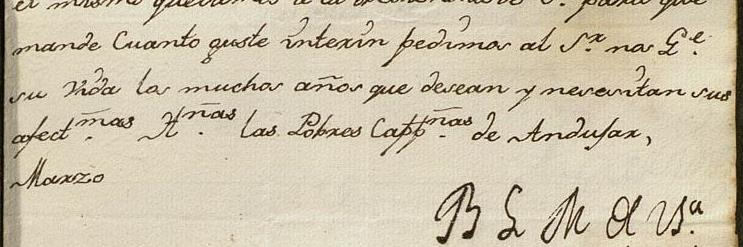 el mismo para que
mande Cuanto guste interin pedimos al S.r nos G.e
su Vida los muchos años que desean y necesitan sus
afect.mas H.nas las Pobres Capp.nas de Andujar,
Marzo
B L M d V.a